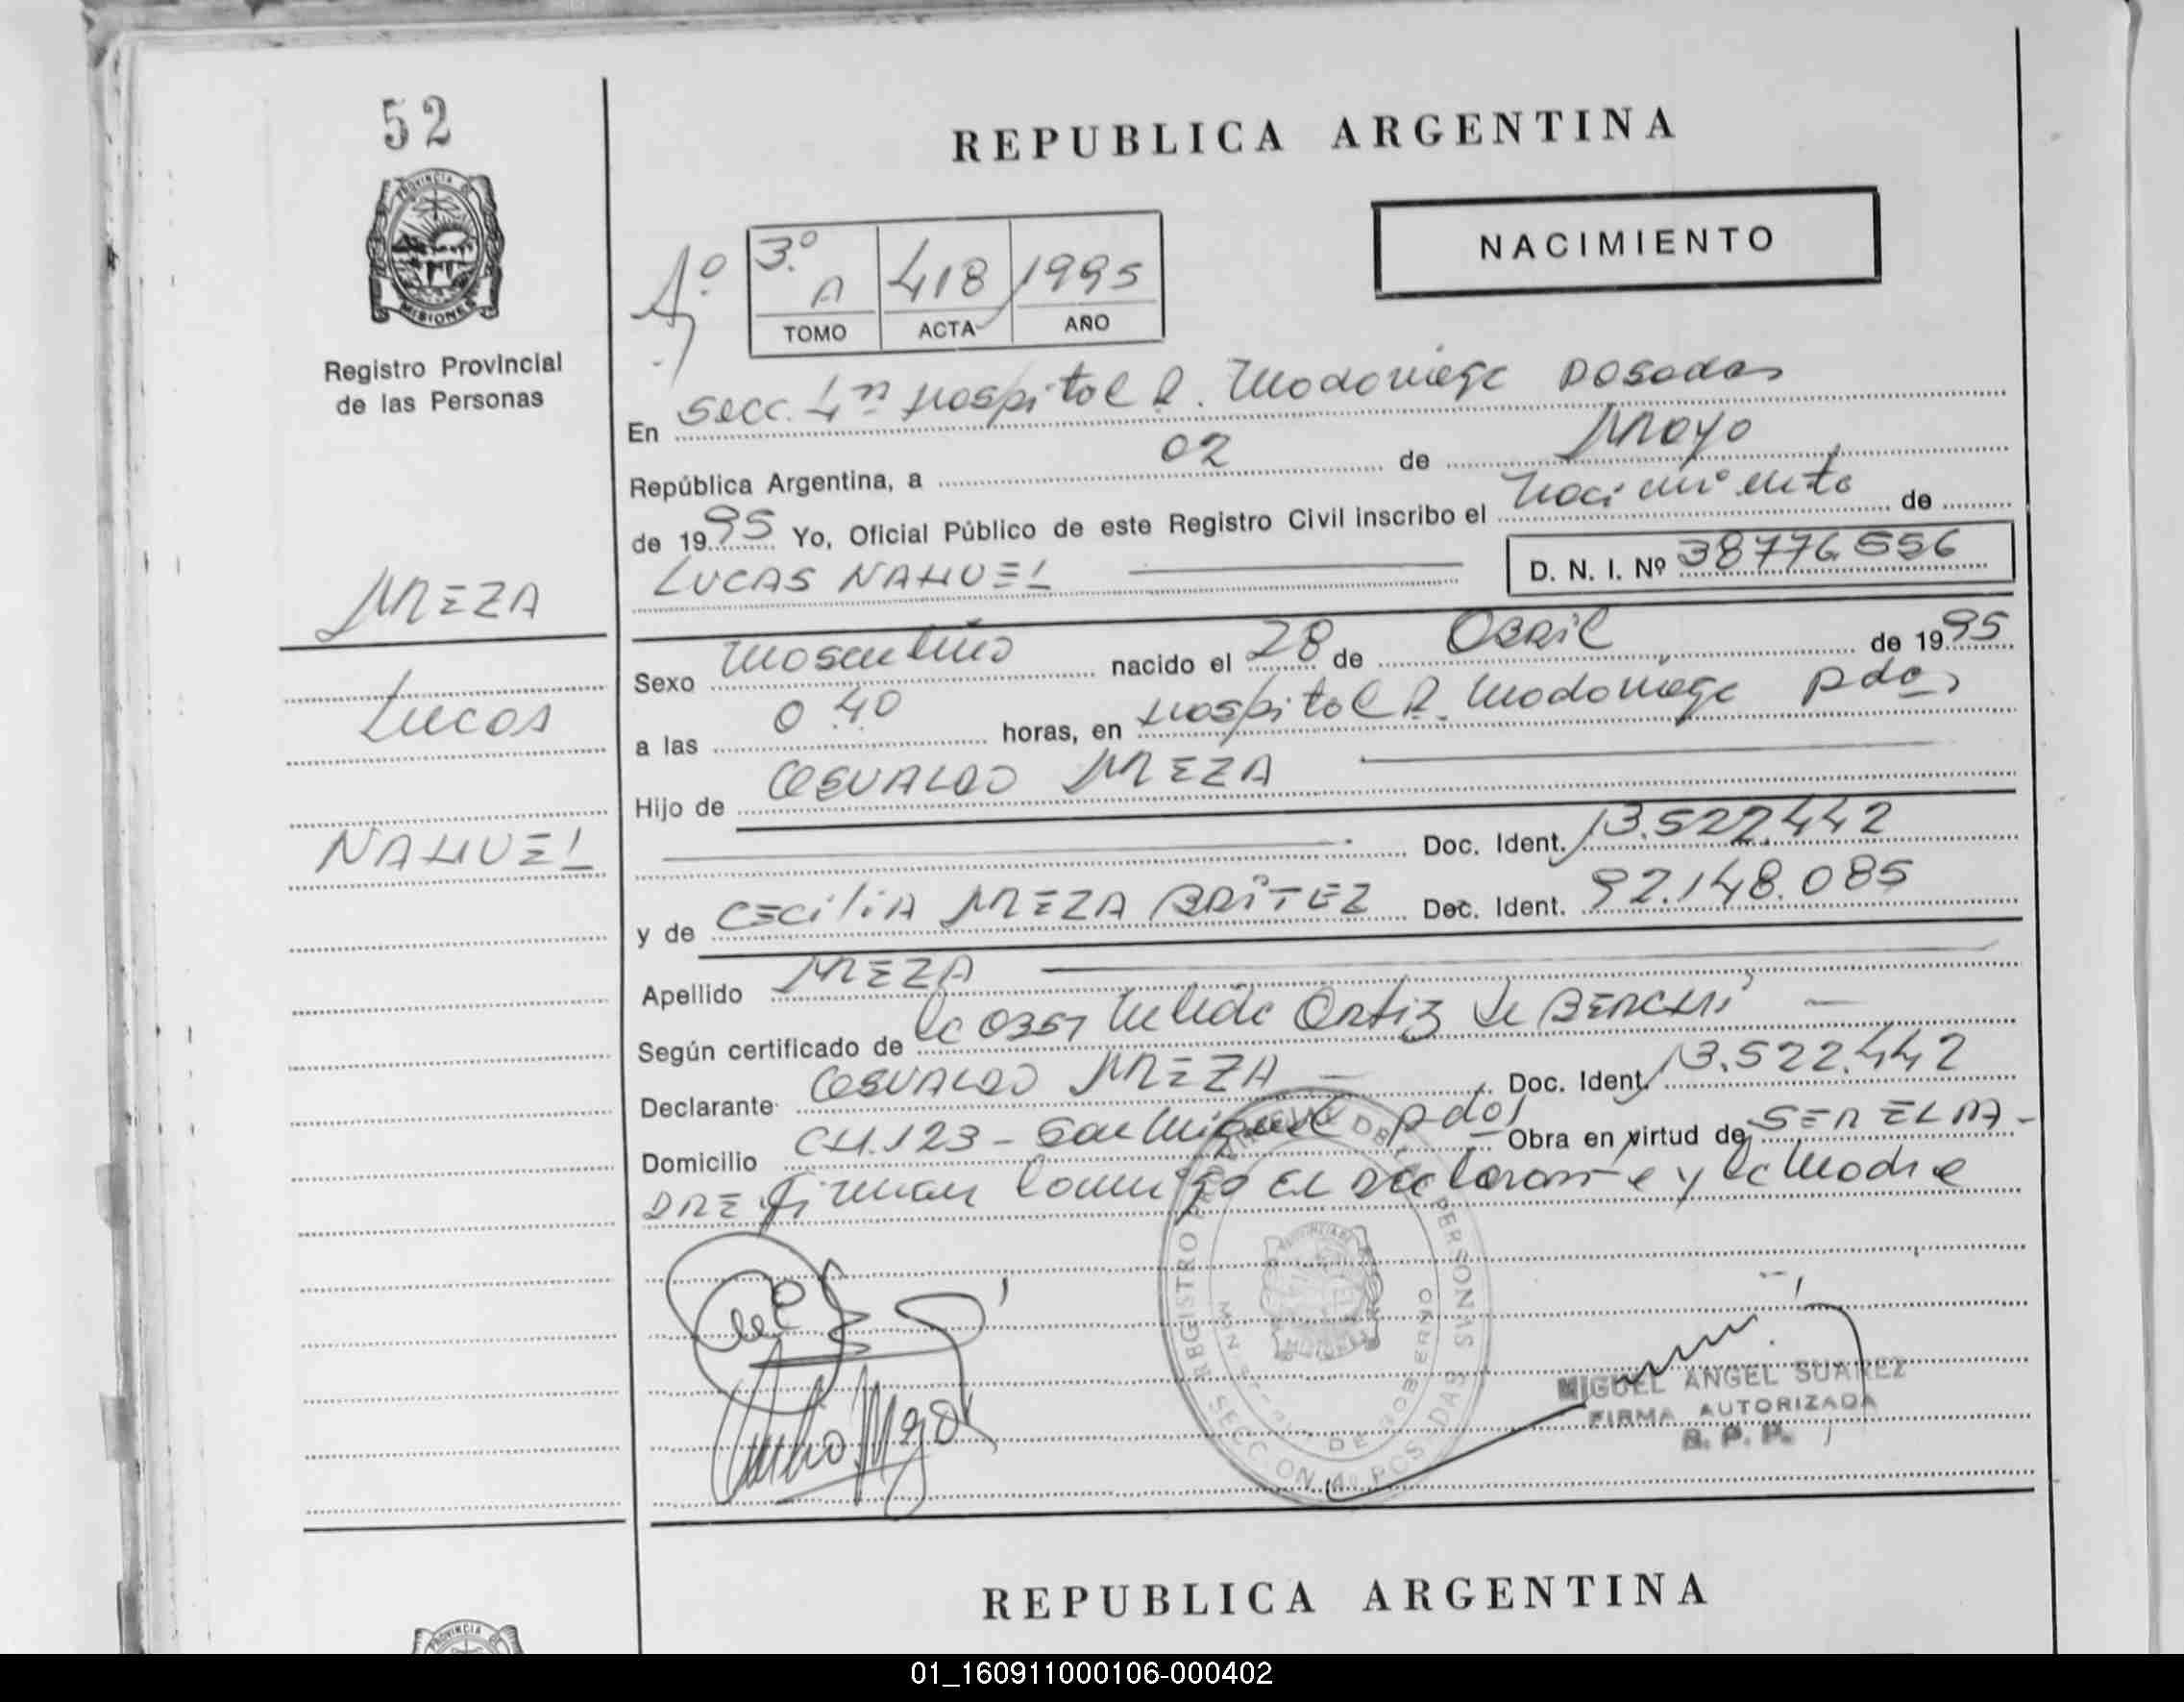 52
PROVINCIA DE
MISIONES
Registro Provincial
de las Personas
MEZA
Lucas
NAHUEL
REPUBLICA ARGENTINA
NACIMIENTO
3º A 418 1995
TOMO ACTA AÑO
En Secc. 4ta Hospital R. Madariaga Posadas
República Argentina, a 02 de Mayo
de 1995 Yo, Oficial Público de este Registro Civil inscribo el nacimiento de
LUCAS NAHUEL D. N. I. Nº 38776.556
Sexo masculino nacido el 28 de Abril de 1995
a las 0.40 horas, en Hospital R. Madariaga pdas
Hijo de OSVALDO MEZA
Doc. Ident. 13.522.442
y de CECILIA MEZA BRITEZ Doc. Ident. 92.148.085
Apellido MEZA
Según certificado de la Ortiz de BERCHI
Declarante OSVALDO MEZA Doc. Ident. 13.522.442
Domicilio CH.123 - San Miguel pdas Obra en virtud de SER EL PA-
DRE firman conmigo el declarante y la madre
REGISTRO PROVINCIAL DE LAS PERSONAS
SECCION 4a POSADAS
MINIST. DE GOBIERNO
MIGUEL ANGEL SUAREZ
FIRMA AUTORIZADA
R. P. P.
REPUBLICA ARGENTINA
PROVINCIA DE
01_160911000106-000402